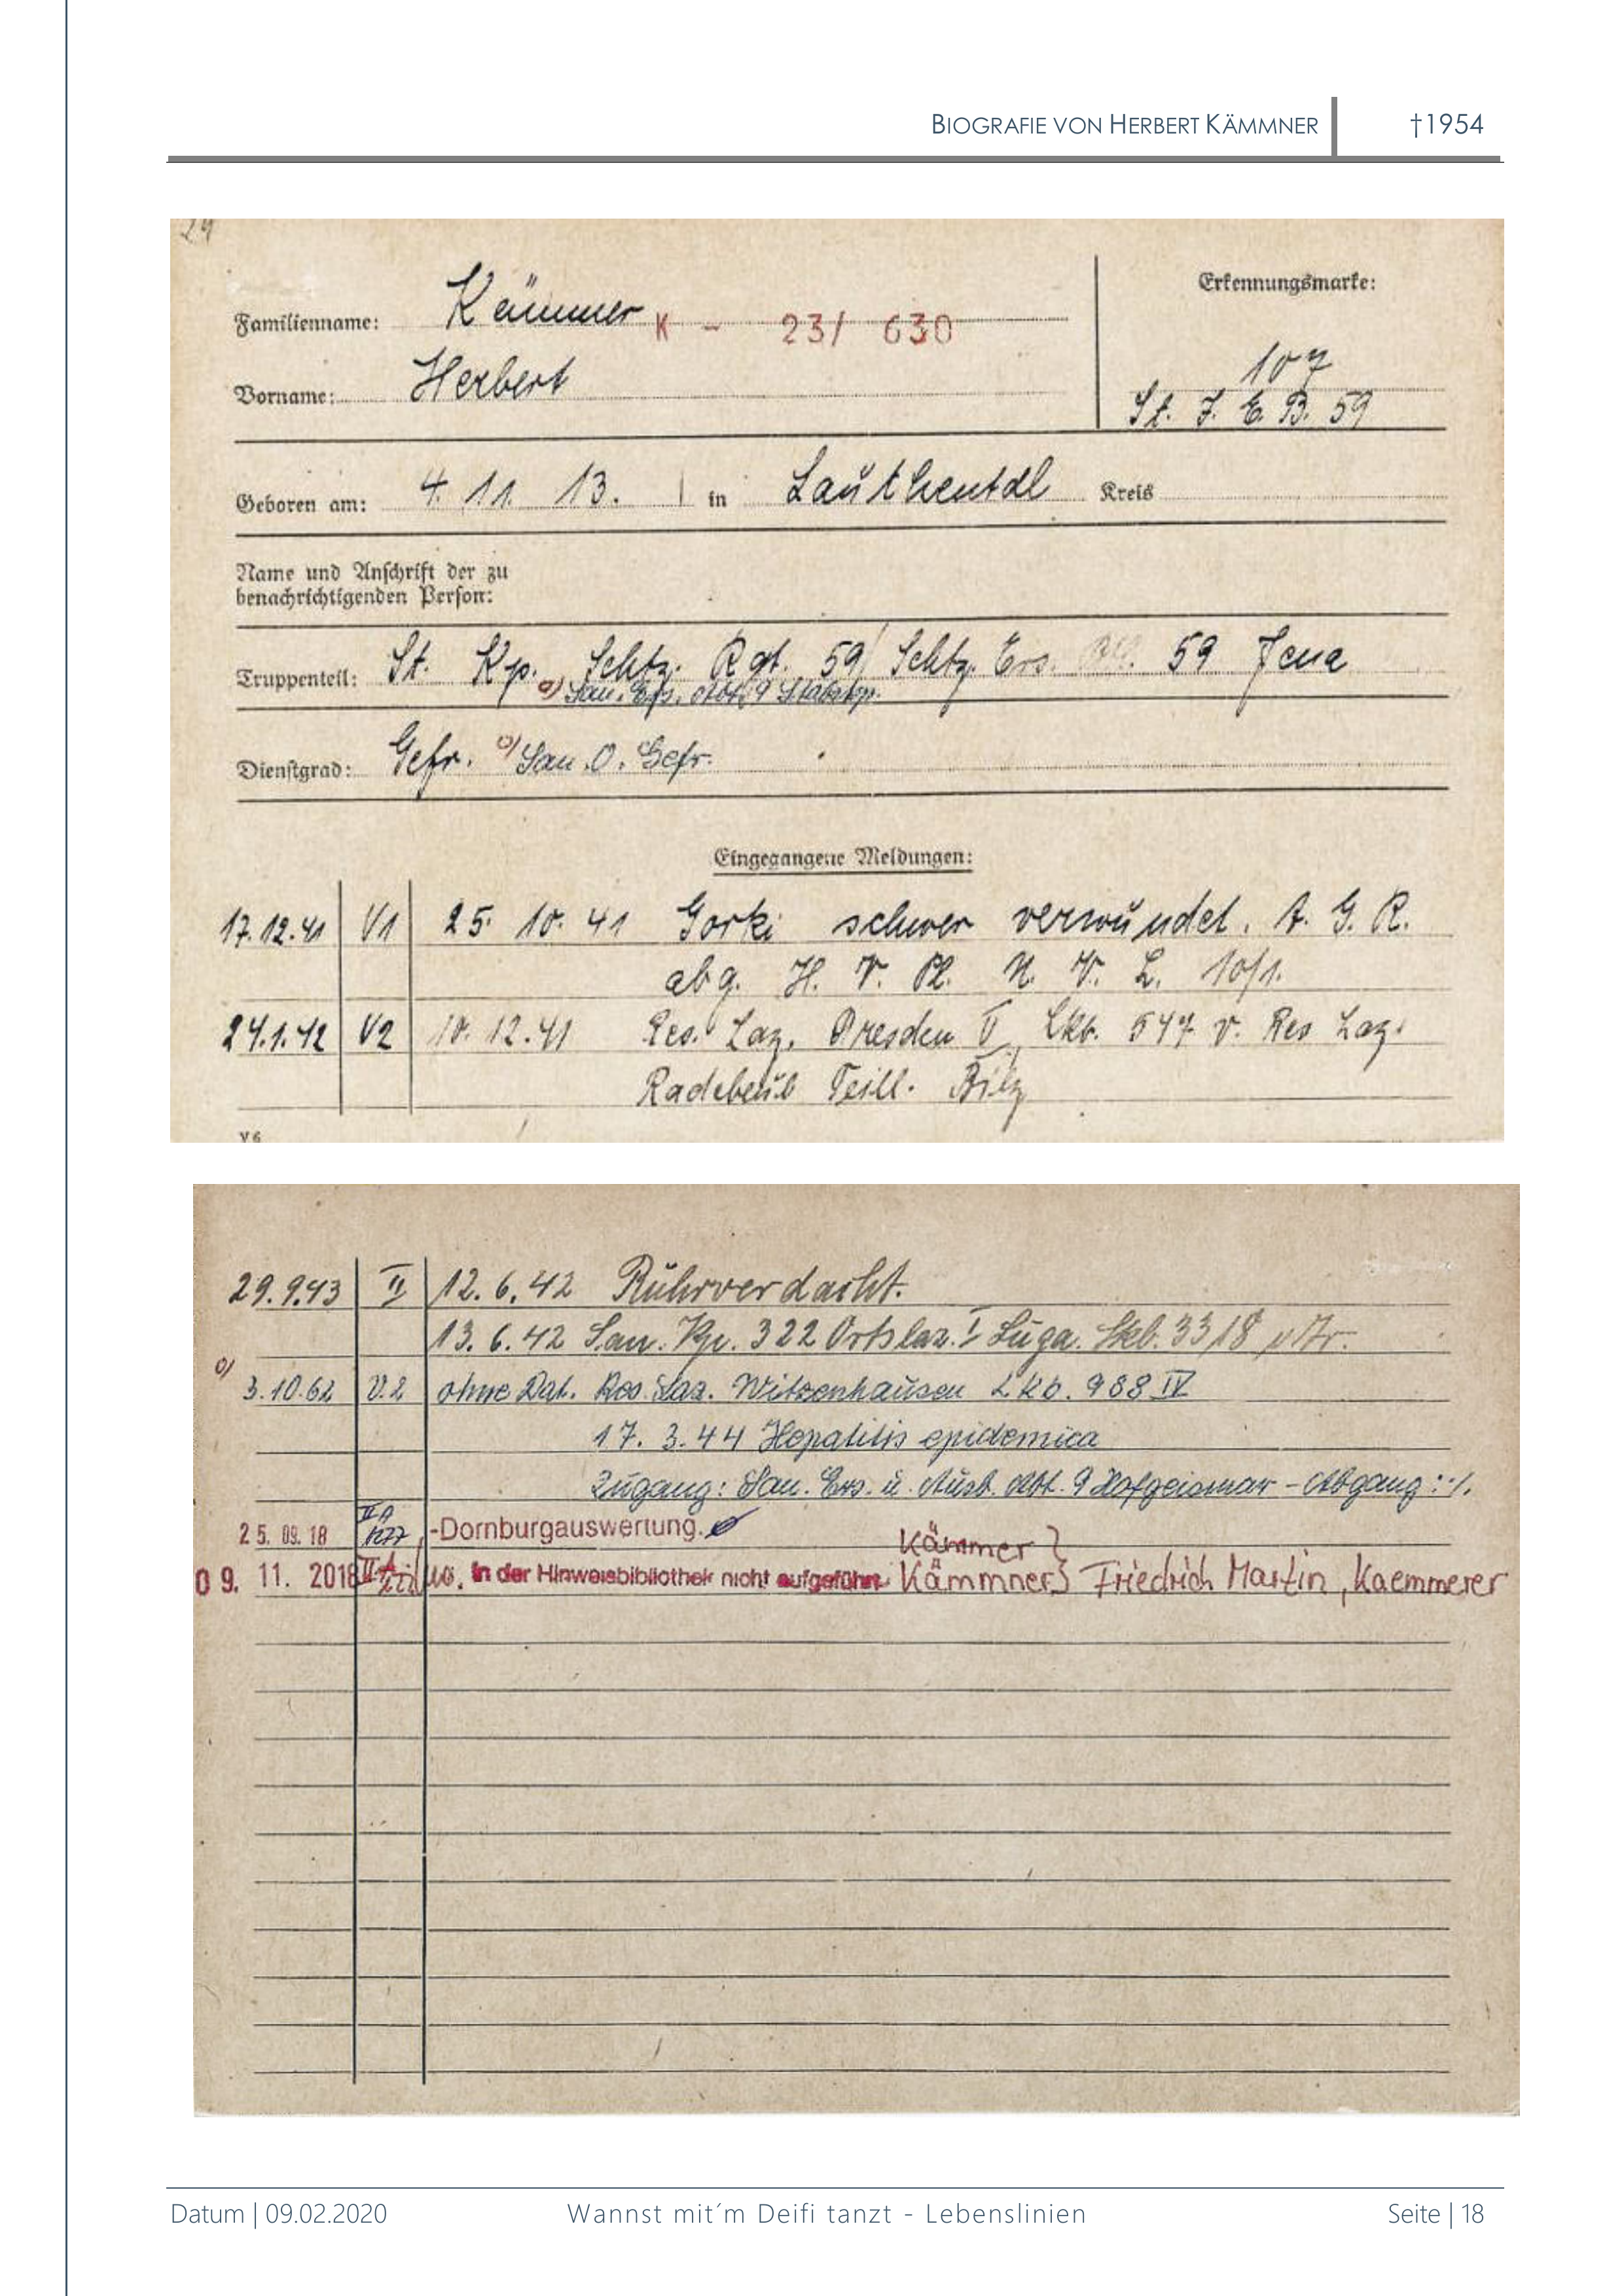 BIOGRAFIE VON HERBERT KÄMMNER †1954
24
Familienname: Kämmer K - 23/ 630
Erkennungsmarke:
Vorname: Herbert
107
St. J. E. B. 59
Geboren am: 4 11. 13. in Lauthental Kreis
Name und Anschrift der zu
benachrichtigenden Person:
Truppenteil: St. Kp. Schtz. Rgt. 59/ Schtz. Ers. 59 Jena
San. Ers. Abt. 9 Stabskp.
Dienstgrad: Gefr. San. O. Gefr.
Eingegangene Meldungen:
17.12.41 V1 25. 10. 41 Gorki schwer verwundet. A. G. R.
abg. H. V. Pl. N. V. L. 10/1.
24.1.42 V2 10. 12.41 Res. Laz. Dresden V, Lkb. 547 v. Res Laz.
Radebeul Teill. Bilz
V 6
29.9.43 II 12.6.42 Ruhrverdacht.
13.6.42 San. Kp. 322 Ortslaz. I Luga. Lkb. 3318
3.10.62 V.2 ohne Dat. Res. Laz. Witzenhausen Lkb. 988 IV
17. 3.44 Hepatitis epidemica
Zugang: San. Ers. u. Ausb. Abt. 9 Hofgeismar - Abgang: ·/.
25. 09. 18 -Dornburgauswertung.
Kämmer }
09. 11. 2018 In der Hinweisbibliothek nicht aufgeführt Kämmner } Friedrich Martin, Kaemmerer
Datum | 09.02.2020 Wannst mit´m Deifi tanzt - Lebenslinien Seite | 18